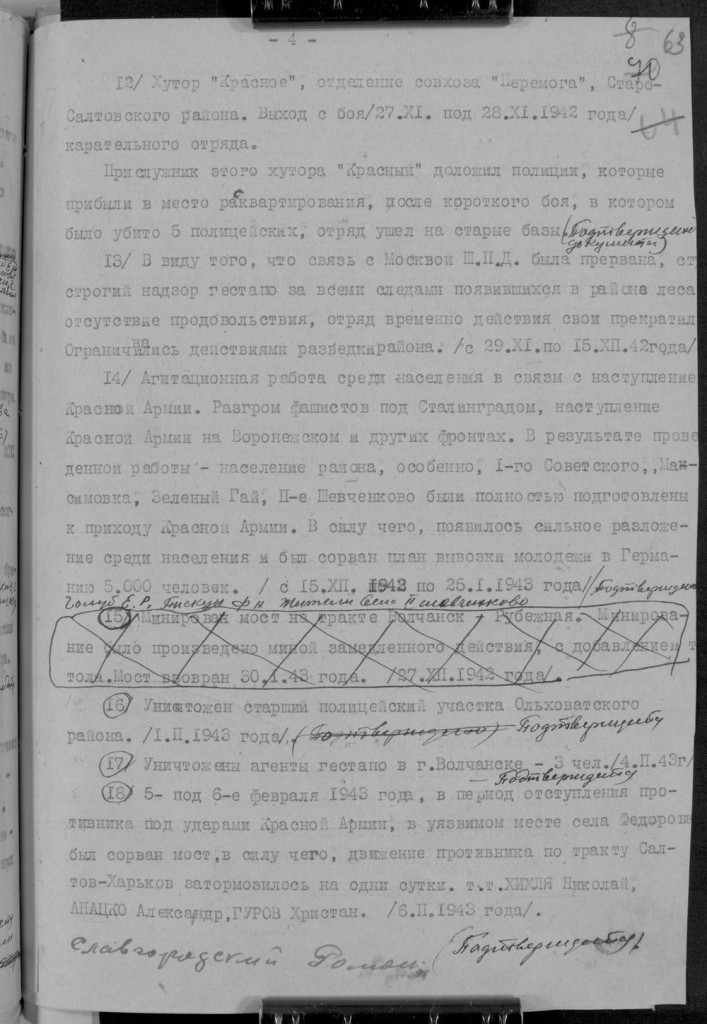 - 4 -
8 63
70
64
12/ Хутор "Красное", отделение совхоза "Перемога", Старо-
Салтовского района. Выход с боя/27.XI. под 28.XI.1942 года/
карательного отряда.
Прислужник этого хутора "Красный" доложил полиции, которые
прибыли в место расквартирования, после короткого боя, в котором
было убито 5 полицейских, отряд ушел на старые базы. (Подтверждено
документы)
13/ В виду того, что связь с Москвой Ш.П.Д. была прервана, ст
строгий надзор гестапо за всеми следами появившихся в районе леса
отсутствие продовольствия, отряд временно действия свои прекратил
Ограничивались действиями разведки района. /с 29.XI.по 15.XII.42года/
14/ Агитационная работа среди населения в связи с наступление
Красной Армии. Разгром фашистов под Сталинградом, наступление
Красной Армии на Воронежском и других фронтах. В результате прове
денной работы - население района, особенно, I-го Советского,,Мак-
симовка, Зеленый Гай, II-е Шевченково были полностью подготовлены
к приходу Красной Армии. В силу чего, появилось сильное разложе-
ние среди населения и был сорван план вывозки молодежи в Герма-
нию 5.000 человек. / с 15.XII. 1942 по 25.I.1943 года/ /Подтверждено
Голуб Е.Р. жители село II Шевченково
15/ Минирован мост на тракте Волчанск - Рубежная. Минирова-
ние было произведено миной замедленного действия, с добавлением т
тола.Мост взорван 30.I.43 года. /27.XII.1942 года/.
16/ Уничтожен старший полицейский участка Ольховатского
района. /1.II.1943 года/. (Подтверждено) Подтвердить
17/ Уничтожены агенты гестапо в г.Волчанске - 3 чел./4.II.43г/
— Подтвердить
18/ 5- под 6-е февраля 1943 года, в период отступления про-
тивника под ударами Красной Армии, в уязвимом месте села Федоровк
был сорван мост,в силу чего, движение противника по тракту Сал-
тов-Харьков затормозилось на одни сутки. т.т.ХИХЛЯ Николай,
АНАЦКО Александр,ГУРОВ Христан. /6.II.1943 года/.
Славгородский Роман. (Подтвердить)